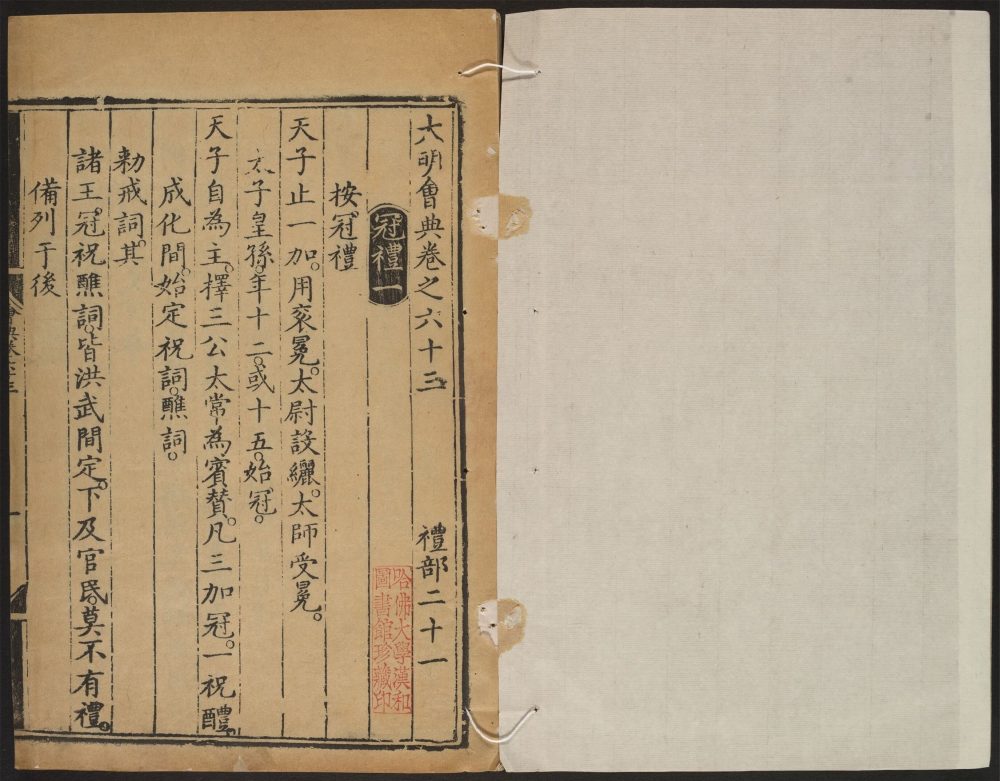 大明會典卷之六十三 禮部二十一
哈佛大學漢和
圖書館珍藏印
冠禮一
按冠禮
天子止一加。用衮冕。太尉設纚。太師受冕。
太子皇孫。年十二。或十五。始冠。
天子自為主。擇三公太常為賓賛。凡三加冠。一祝醴。
成化間。始定祝詞。醮詞。
勑戒詞。其
諸王。冠祝醮詞。皆洪武間定。下及官民。莫不有禮。
備列于後